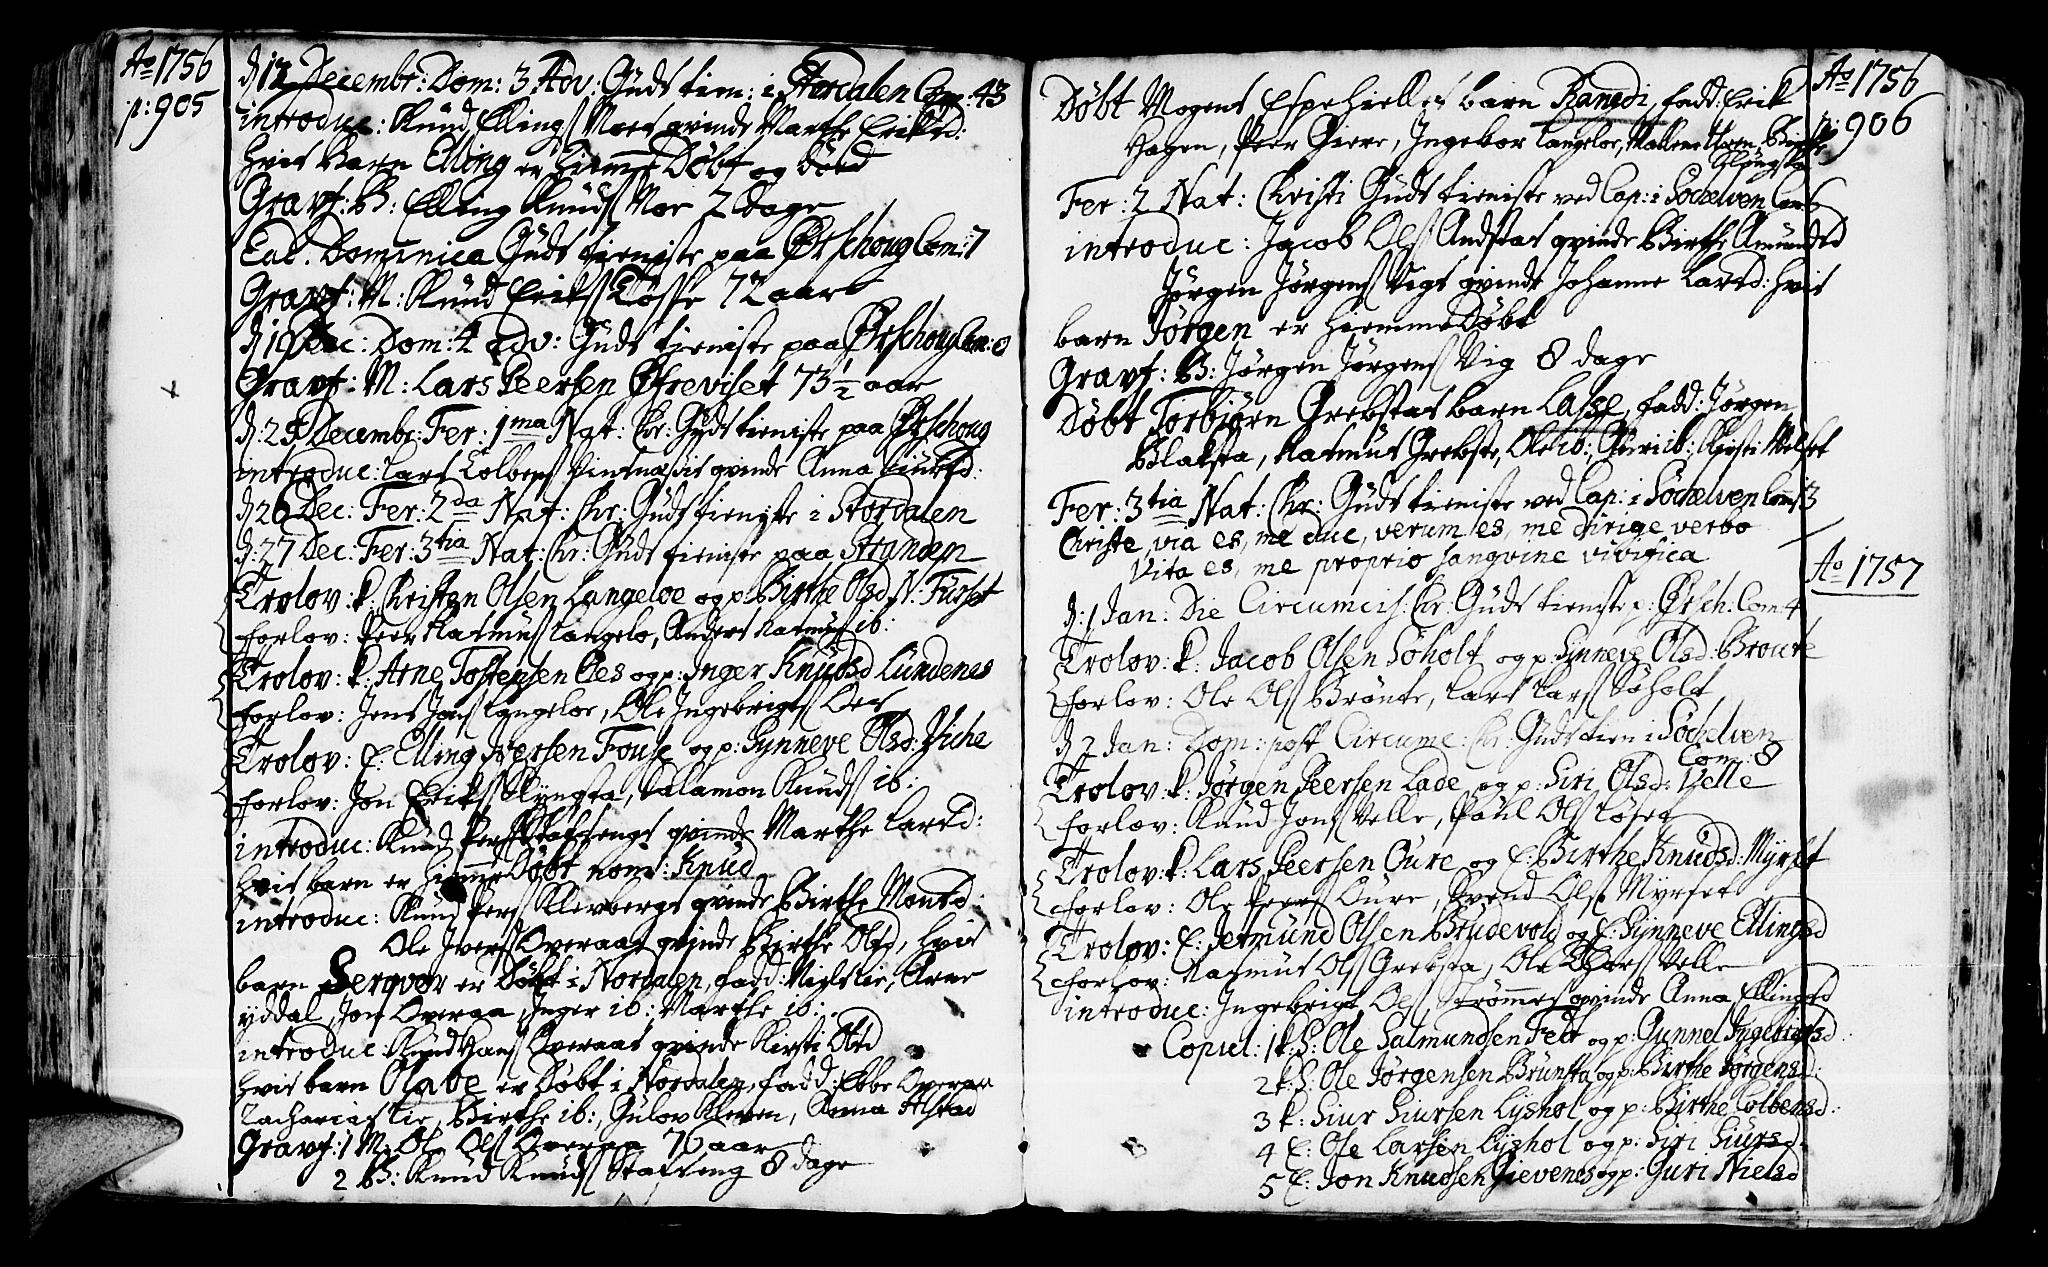 Ao 1756
p: 905
d 12 Decembr: Dom: 3 Adv: Guds tien: i Stordalen Com: 43
introduc: Knud Ellings Moes qvinde Marthe Eriksd:
hvis barn Elling er hiemme Døbt og Død
Gravf: B: Elling Knuds Moe 2 Dage
Ead. Dominica Guds tieniste paa Ørschoug Com: 7
Gravf: M: Knud Eriks Tosse 72 aar
d 19 Dec: Dom: 4 Adv: Guds tieniste paa Ørschoug Com: 8
Gravf: M: Lars Peersen Øfreviset 73 1/2 aar
d: 25 Decembr: Fer: 1ma Nat: Chr: Guds tieniste paa Ørschoug
introduc: Lars Colbens qvinde Anna
d 26 Dec: Fer: 2da Nat: Chr: Guds tieniste i Stordalen
d: 27 Dec: Fer: 3tia Nat: Chr: Guds tieniste paa Stranden
Trolov: k: Christen Olsen Langeloe og p: Birthe Olsd N: Furset
forlov: Peer Rasmus Langelo, Anders Rasmus ib:
Trolov: k: Arne Tostensen Oes og p: Inger Knudsd Lundenes
forlov: Jens Jons Langeloe, Ole Ingebrigts Oes
Trolov: E: Elling Iversen Fouse og p: Synneve Olsd: Viche
forlov: Jon Eriks Slyngsta, Salamon Knuds ib:
introduc: Knud Pers Stafsengs qvinde Marthe Larsd:
hvis barn er hiemme Døbt nom: Knud
introduc: Knud Pers Klevbergs qvinde Birthe Monsd:
Ole Ivers Overaas qvinde Birthe Olsd, hvis
barn Serqver er Døbt i Nordalen, fadd: Niels Lie, Arne
yddal, Jon Overaa, Inger ib:, Marthe ib:
introduc: Knud Hans Overaas qvinde Kirsti Olsd
hvis barn Olave er Døbt i Nordalen, fadd: Ebbe Overaa
Zacharias Lie, Birthe ib:, Gulov Kleven, Anna Alstad
Gravf: 1 M: Ole Ols Overaa 76 aar
2 B: Knud Knuds Stafseng 8 dage
Ao 1756
p: 906
Døbt Mogens Espehielles barn Ranedi, fadd: Erik
Hagen, Peer Giere, Ingebor Langeloe, Malene Uren, Birthe
Slyngsta
Fer: 2 Nat: Christi Guds tieniste ved Cap: i Søchelven Com: 6
introduc: Jacob Ols Andstas qvinde Birthe Amundsd
Jørgen Jørgens Vigs qvinde Johanne Larsd: hvis
barn Jørgen er hiemme Døbt
Gravf: B: Jørgen Jørgens Vig 8 dage
Døbt Torbjørn Grebstas barn Lasse, fadd: Jørgen
Blaksta, Rasmus Grebste, Ole ib:, Guri ib: Kirsti Velset
Fer: 3tia Nat: Chr: Guds tieniste ved Cap: i Søchelven Com: 3
Christe, via es, me duc, verum es, me dirige verbo
Vita es, me proprio sangvine vivifica
Ao 1757
d: 1 Jan: Die Circumcis: Chr: Guds tieniste p: Ørsch: Com 4
Trolov: k: Jacob Olsen Søholt og p: Synneve Olsd: Broute
forlov: Ole Ols Brônte, Lars Lars Søholt
d 2 Jan: Dom: post Circumc: Chr: Guds tien i Søchelven
Com: 8
Trolov: k: Jørgen Peersen Lade og p: Siri Olsd: Velle
forlov: Knud Jons Velle, Poul Ols Løset
Trolov: k: Lars Peersen Oure og E: Birthe Knudsd: Myrset
forlov: Ole Peers Oure, Svend Ols Myrset
Trolov: E: Jermund Olsen Brudevold og E: Synneve Ellingsd
forlov: Rasmus Ols Greksta, Ole Velle
introduc: Ingebrigt Ols Strømmes qvinde Anna Ellingsd
Copul: 1 k: S: Ole Salmundsen Fett og p: Gunnel Ingebrigtsd:
2 k: S: Ole Jørgensen Brunsta og p: Birthe Jørgensd:
3 k: Siur Siursen Lyshol og p: Birthe Colbensd:
4 E: Ole Larsen Lyshol og p: Siri Siursd:
5 E: Jon Knudsen Gievenes og p: Guri Nielsd